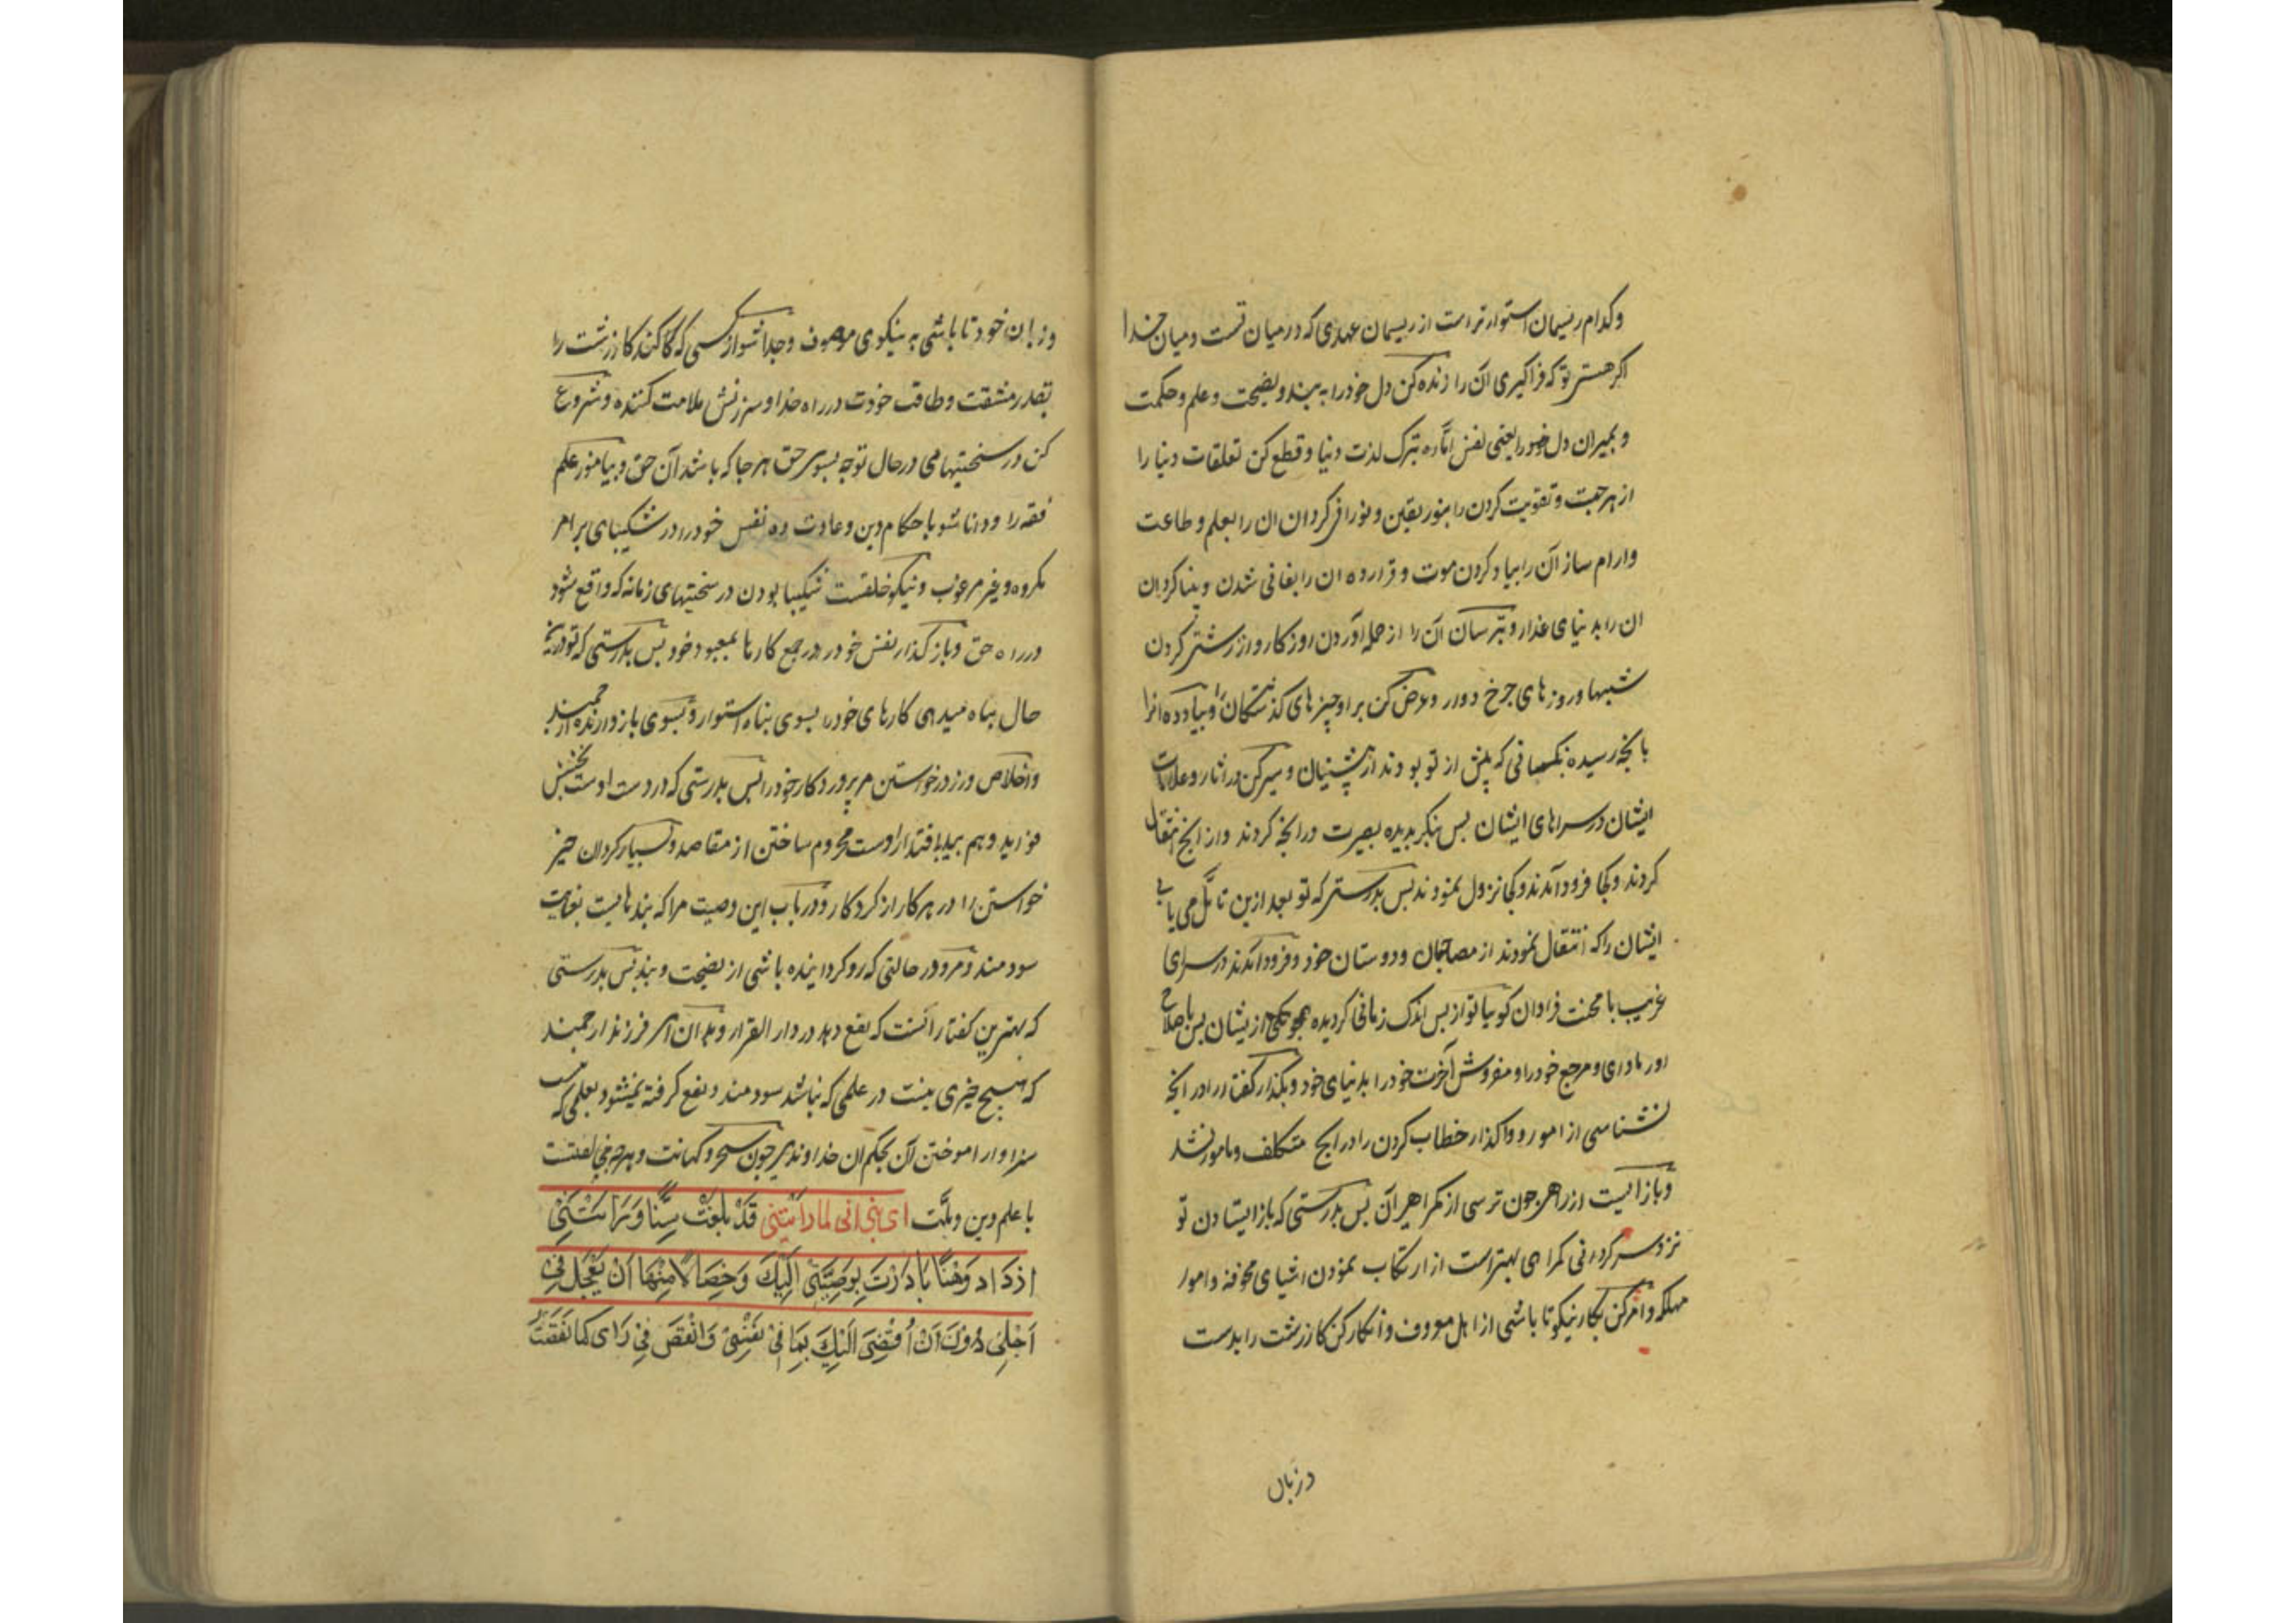 وکدام ریسمان استوارتر است از ریسمان عهدی که در میان تست و میان خدا
اکر هستی تو که فراکیری آن را زنده کن دل خود را به پند و نصیحت و علم و حکمت
و بمیران دل خود را یعنی نفس اماره بترک لذت دنیا و قطع کن تعلقات دنیا را
از هر جهت و تقویت کردن را بنور یقین و نورانی کردان ان را بعلم و طاعت
و ارام ساز آن را بیاد کردن موت و قرار ده ان را بفانی شدن و بینا کردان
ان را بد نیای غدار و بترسان آن را از حمله آوردن روزکار و از زشتی کردن
شبها و روزهای چرخ دوار و عرض کن بر او چیزهای کذشتکان را و بیاد ده انرا
بانچه رسیده بکسانی که پیش از تو بودند از پیشینیان و سیر کن در اثار و علامات
ایشان در سراهای ایشان پس بنکر بدیده بصیرت در انچه کردند و از انچه انتقال
کردند و کجا فرود آمدند و کجا نزول نمودند پس بدرستی که تو بعد ازین تامل می یابی
ایشان را که انتقال نمودند از مصاحبان و دوستان خود و فرود آمدند در سرای
غریب با محنت فراوان کوییا تو از پس اندک زمانی کردیده همچو یکی از یشان پس باصلاح
اور ماوای و مرجع خود را و مفروش آخرت خود را بدنیای خود و بکذار کفتار را در انچه
نشناسی از امور و واکذار خطاب کردن را در انچه متکلف و مامور نشد
و باز ایست از راهی چون ترسی از کمراهی آن پس بدرستی که باز ایستادن تو
نزد سرکردانی کمراهی بهتر است از ارتکاب نمودن اشیای مخوفه و امور
مهلکه و امر کن بکار نیکو تا باشی از اهل معروف و انکار کن کار زشت را بدست
در زبان
و زبان خود تا باشی به نیکوی موصوف و جدا شو از کسی که کند کار زشت را
بقدر مشقت و طاقت خودت در راه خدا و سرزنش ملامت کننده و شروع
کن در سختیها می در حال توجه بسوی حق هر جا که باشد آن حق و بیاموز علم
فقه را و دانا شو باحکام دین و عادت ده نفس خود را در شکیبای بر امر
مکروه و غیر مرغوب و نیکو خلقست شکیبا بودن در سختیهای زمانه که واقع شود
در راه حق و باز کذار نفس خود در جمع کارها بمعبود خود پس بدرستی که تو درین
حال پناه میدهی کارهای خود را بسوی پناه استوار و بسوی باز دارنده ارجمند
و اخلاص ورز در خواستن مر پروردکار خود را پس بدرستی که در دست اوست بخشش
فواید و هم بید باقتدار اوست محروم ساختن از مقاصد و بسیار کردان خیر
خواستن را در هر کار از کردکار و دریاب این وصیت مرا که پند هایست بغایت
سودمند و مرو در حالتی که رو کرداینده باشی از نصیحت و پند پس بدرستی
که بهترین کفتار آنست که نفع دهد در دار القرار و بدان ای فرزند ارجمند
که هیچ خیری نیست در علمی که نباشد سودمند و نفع کرفته نمیشود بعلمی که
سزاوار اموختن آن بحکم ان خداوندی چون سحر و کهانت و هر چه مخالفتست
با علم دین و ملت ای بنی انی لما رایتنی قَدْ بَلَغْتُ سِنًّا وَ رَایتُنِی
ازدَادُ وَهْنًا بَادَرْتُ بِوَصِیَّتِی اِلَیْکَ وَ خِصَالًا مِنْهَا اَنْ یَعْجَلَ فِی
اَجَلِی دُونَ اَنْ اُفْضِیَ اِلَیْکَ بِمَا فِی نَفْسِی وَ انْقُصَ فِی رَای کَمَا نَقَصْتُ